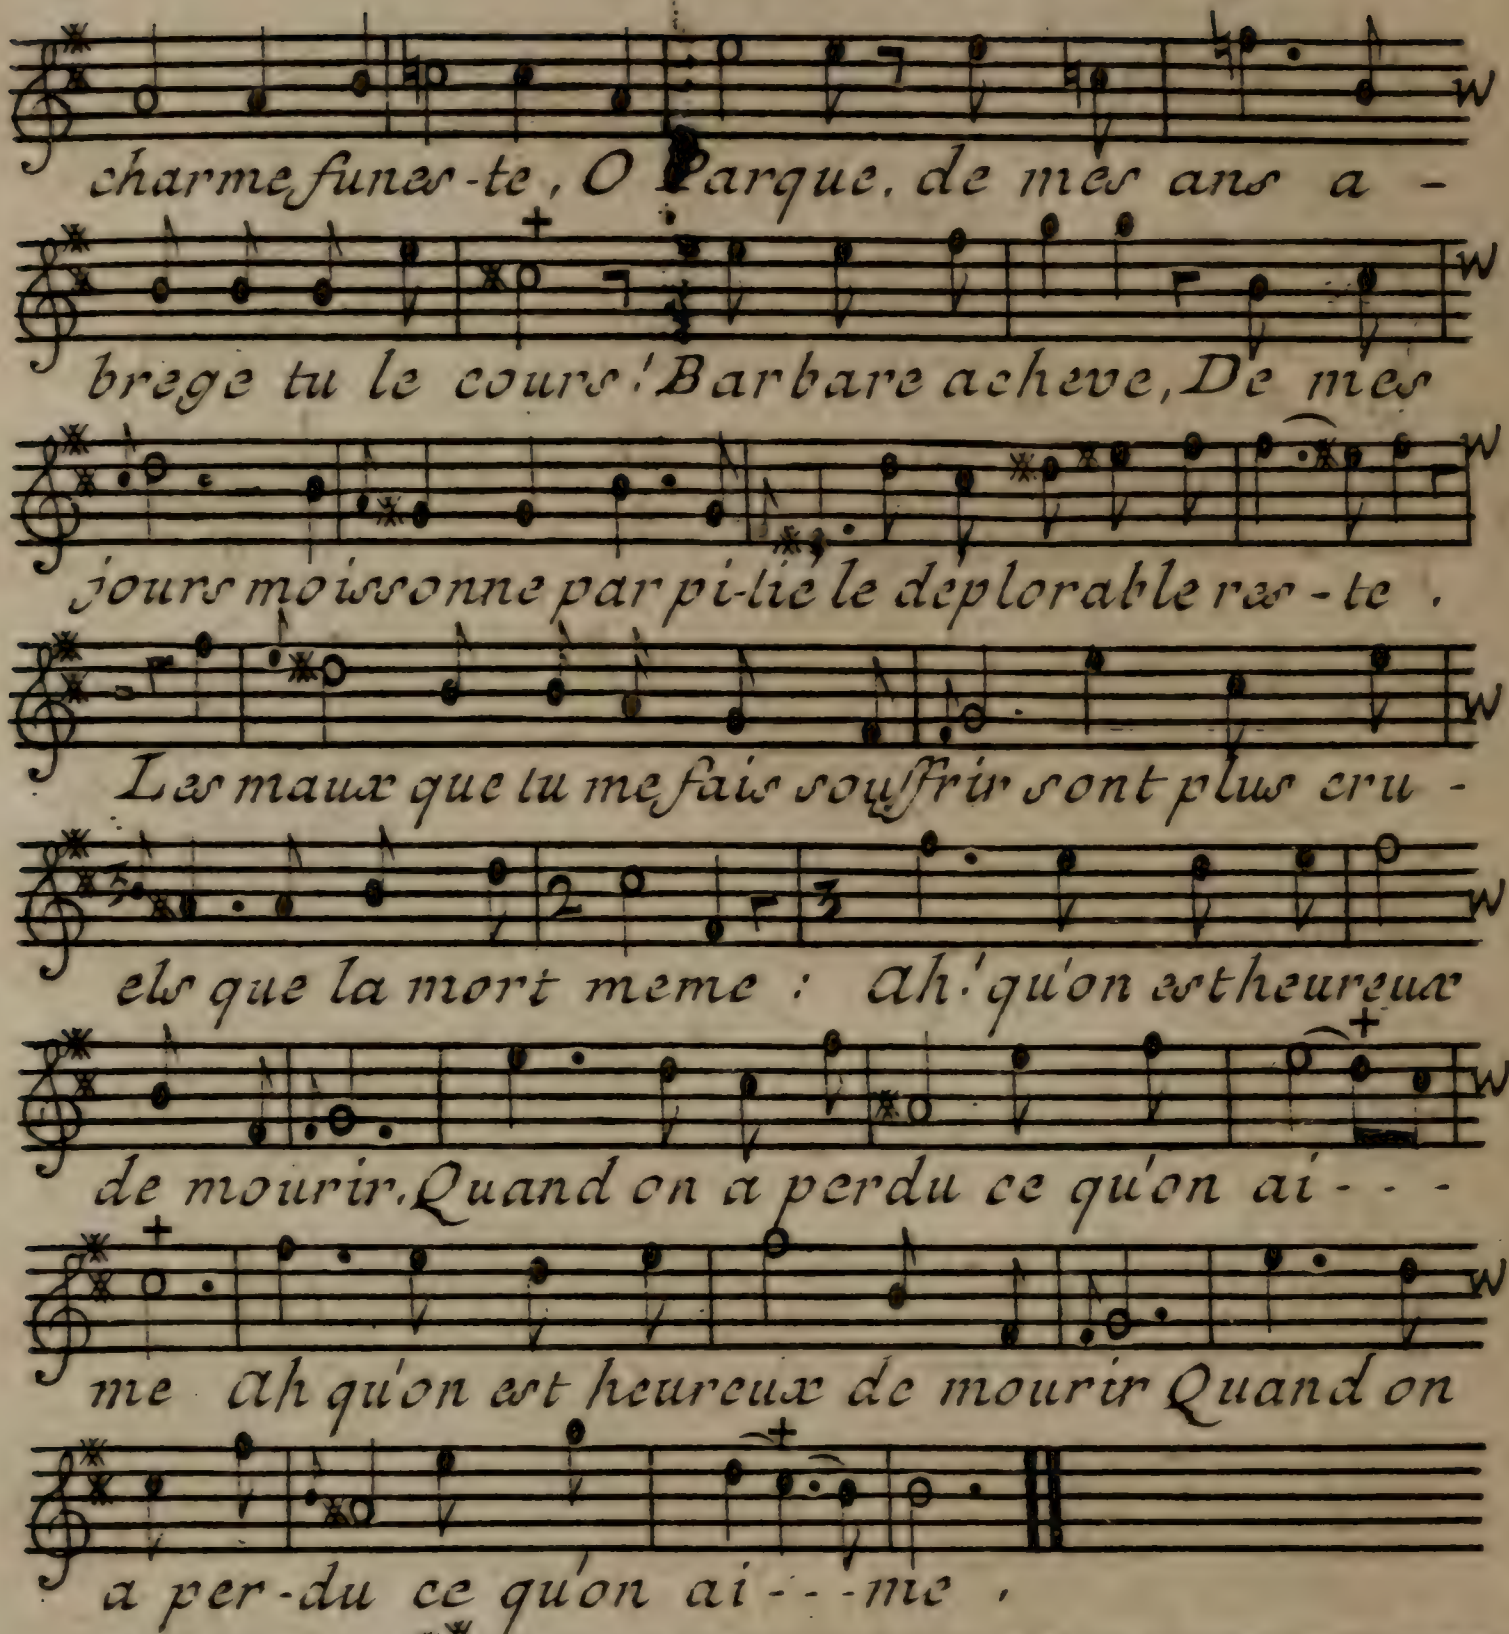 charme funes-te, O Parque, de mes ans a-
brege tu le cours! Barbare acheve, De mes
jours moissonne par pi-tié le deplorable res-te.
Les maux que tu me fais souffrir sont plus cru-
els que la mort meme: Ah! qu'on est heureux
de mourir. Quand on a perdu ce qu'on ai---
me Ah qu'on est heureux de mourir Quand on
a per-du ce qu'on ai---me.